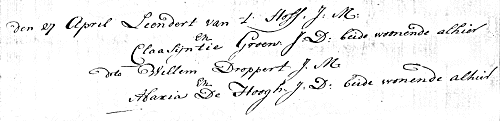 den 27 April Leendert van t. Hoff. J. M.
en
Claasijntie Groen. J D: beide wonende alhier
dito Willem Droppert J. M
en
Maria De Hoogh. J. D: beide wonende alhier